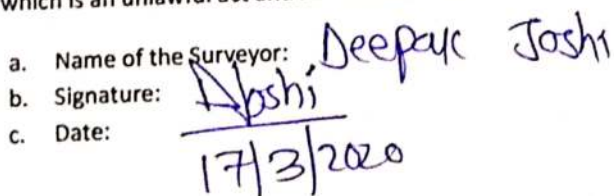 which is an unlawful act and
a. Name of the Surveyor: Deepak Joshi
b. Signature: DJoshi
c. Date: 17/3/2020